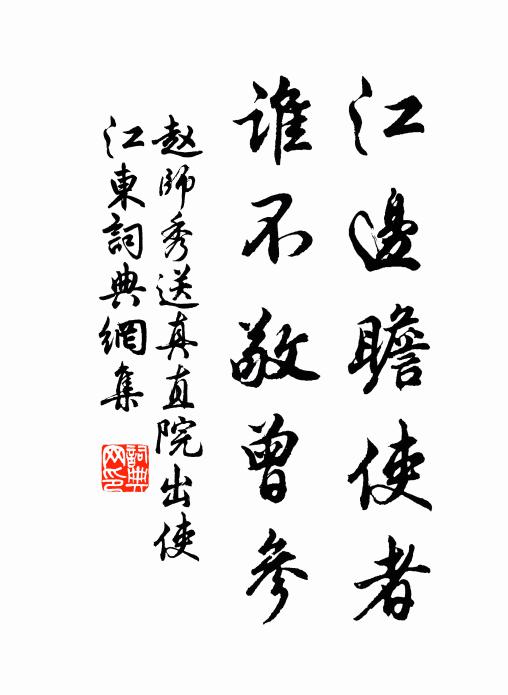 江邊瞻使者
誰不敬曾參
赵師秀送真直院出使
江東詞典網集
詞典网印